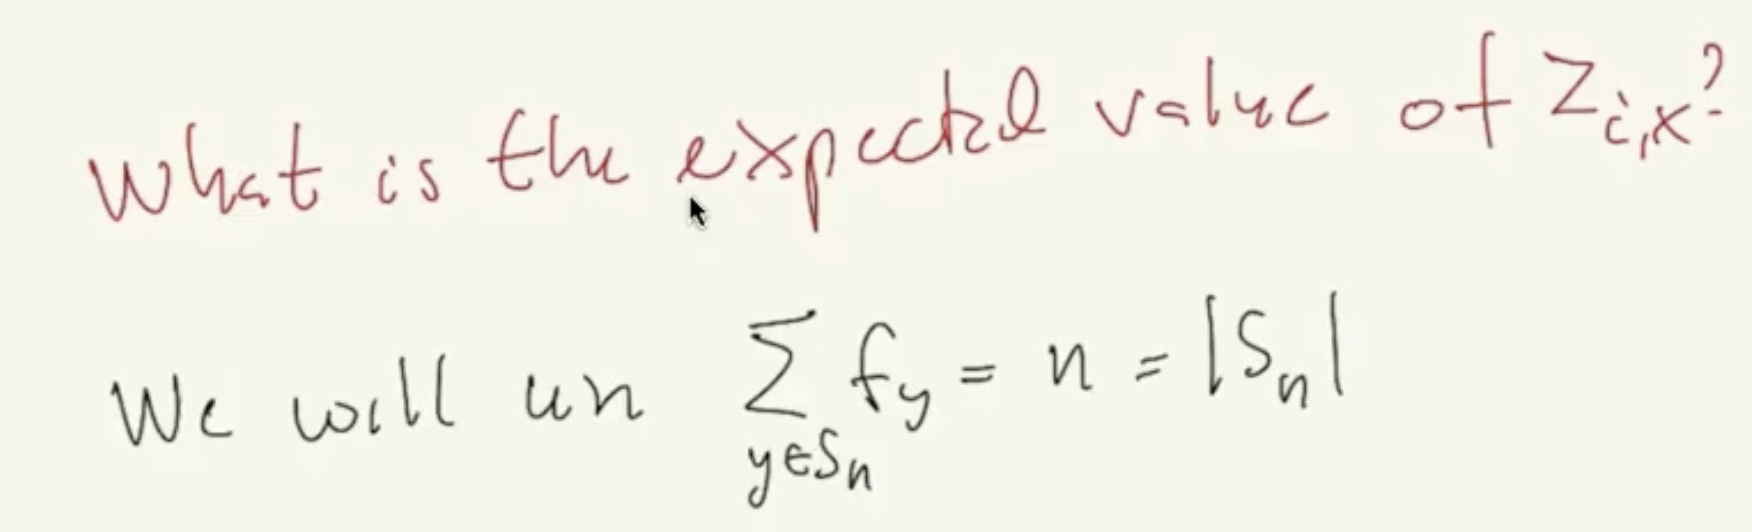 What is the expected value of Z_{i,x}?
We will use \sum_{y \in S_n} f_y = n = |S_n|